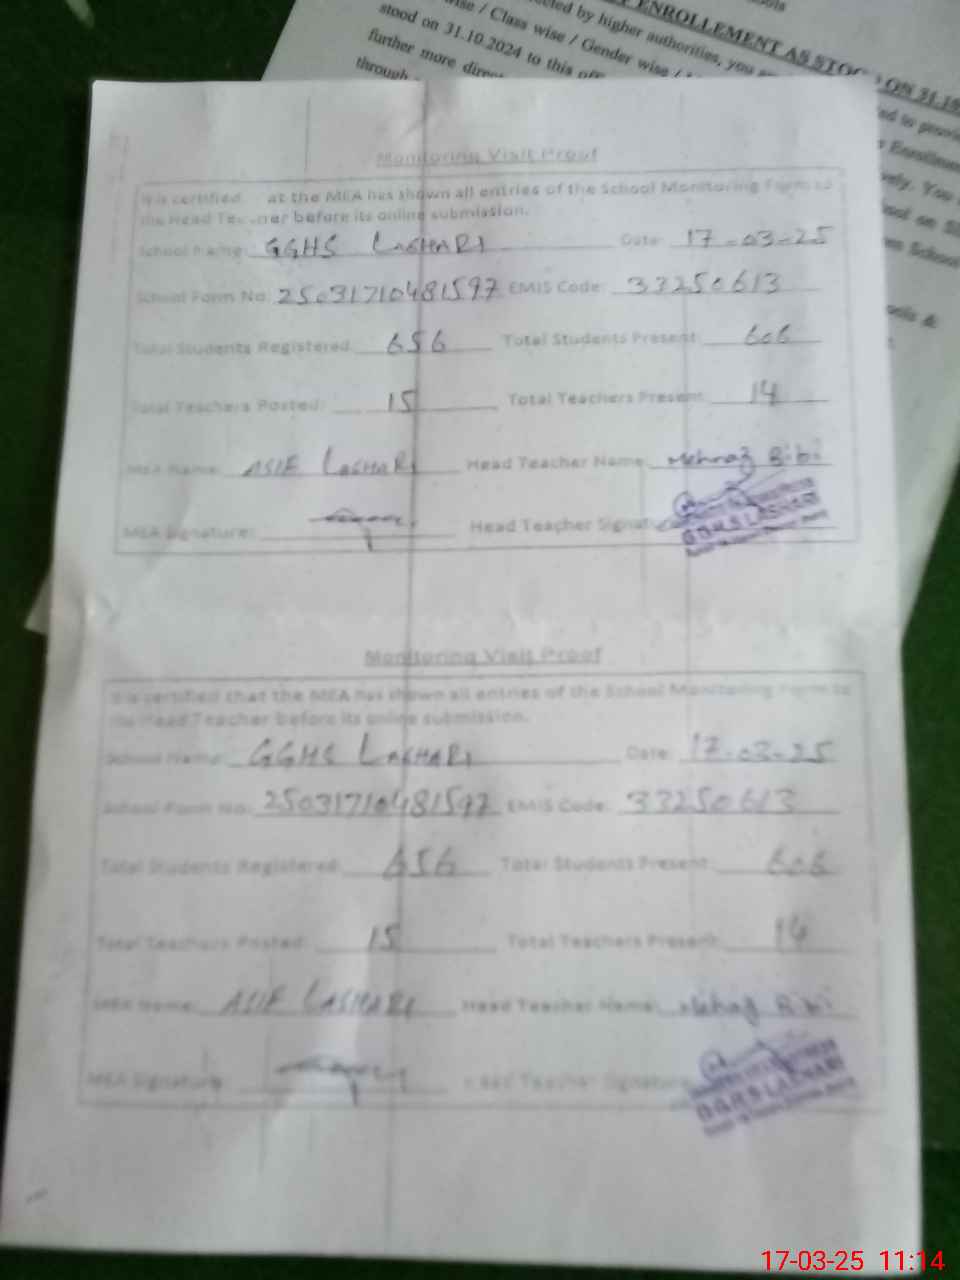 ools
ENROLLEMENT AS STOO
ON 31.10
wise / Class wise / Gender wise /
ected by higher authorities, you
stood on 31.10.2024 to this
further more direc
through
ed to provi
Enrollmen
vely. You
ool on SI
School
ools &
Monitoring Visit Proof
It is certified at the MEA has shown all entries of the School Monitoring Form to
the Head Teacher before its online submission.
School Name: GGHS LASHARI Date: 17-03-25
School Form No: 25031710481597 EMIS Code: 33250613
Total Students Registered: 656 Total Students Present: 606
Total Teachers Posted: 15 Total Teachers Present: 14
MEA Name: ASIF LASHARI Head Teacher Name: Mehnaz Bibi
MEA Signature: Head Teacher Signat
G.G.H.S LASHARI
Monitoring Visit Proof
It is certified that the MEA has shown all entries of the School Monitoring Form to
the Head Teacher before its online submission.
School Name: GGHS LASHARI Date: 17-03-25
School Form No: 25031710481597 EMIS Code: 33250613
Total Students Registered: 656 Total Students Present: 606
Total Teachers Posted: 15 Total Teachers Present: 14
MEA Name: ASIF LASHARI Head Teacher Name: Mehnaz Bibi
MEA Signature: Head Teacher Signature
G.G.H.S LASHARI
17-03-25 11:14